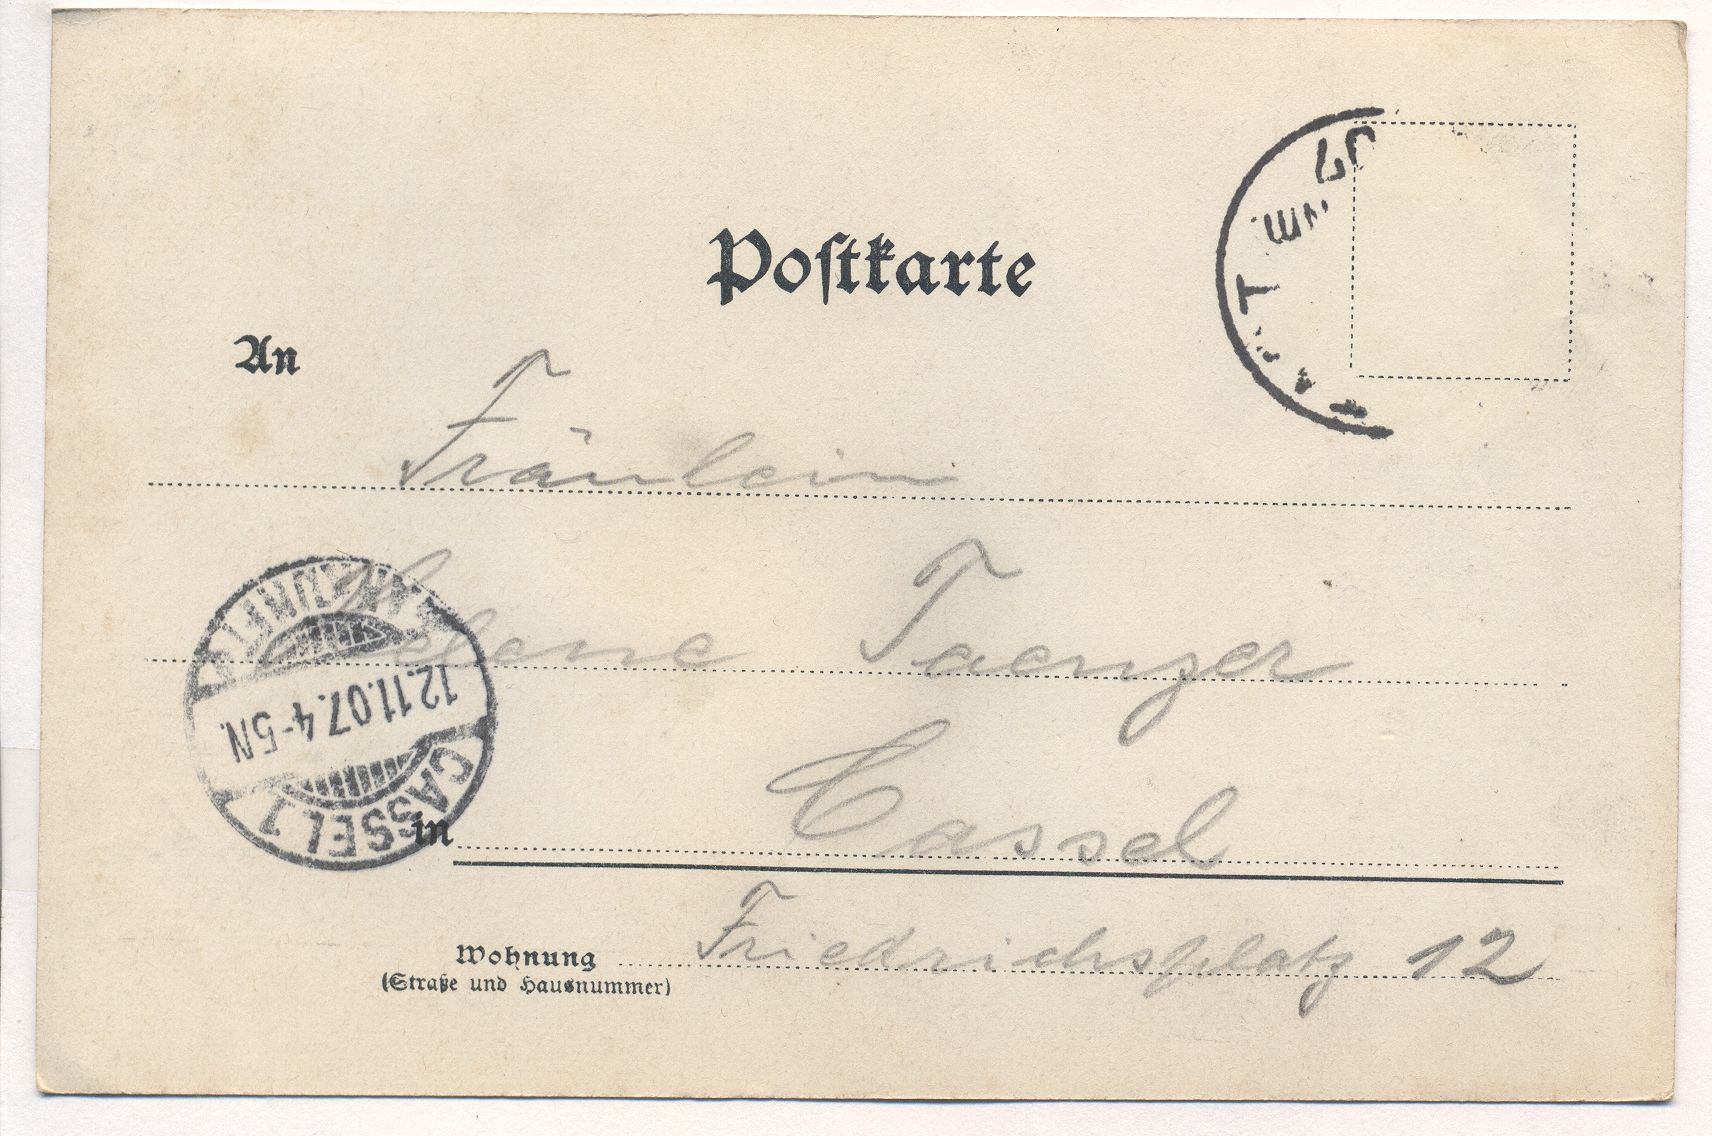 Postkarte
07
An
Fräulein
Helene Taenzer
12.11.07. 4-5N.
CASSEL 1
in Cassel
Wohnung Friedrichsplatz 12
(Straße und Hausnummer)